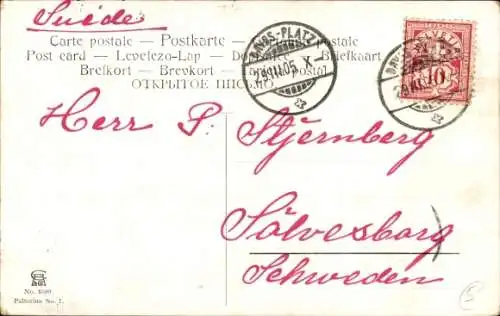 Suède
Carte postale — Postkarte
Post card — Levelezo-Lap — Briefkaart
Brefkort — Brevkort — Postal
ОТКРЫТОЕ
DAVOS-PLATZ
29.XII.05. X
HELVETIA
10
Herr P. Stjernberg
Sölvesborg
Schweden
No.
No. 1.